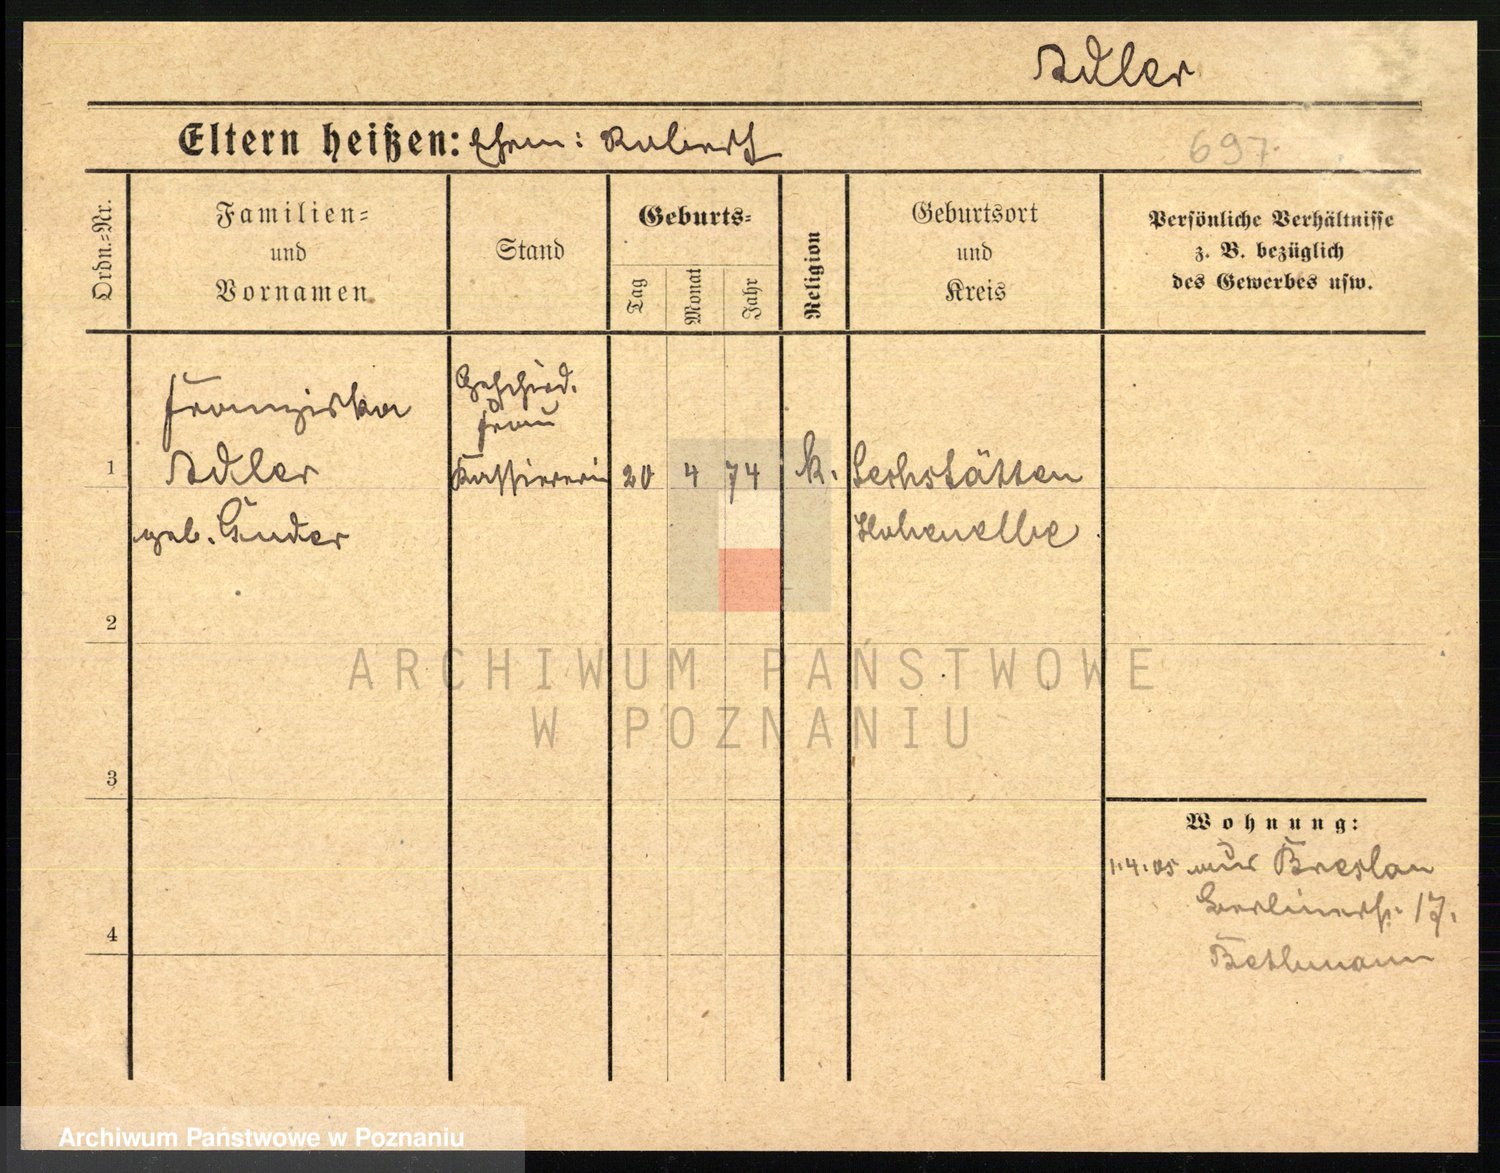 Adler
Eltern heißen: Ehem: Robert
697.
Ordn.=Nr.
Familien=
und
Vornamen
Stand
Geburts=
Tag
Monat
Jahr
Religion
Geburtsort
und
Kreis
Persönliche Verhältnisse
z. B. bezüglich
des Gewerbes usw.
1
Franziska
Adler
geb. Gnder
Geschied.
Frau
Kassiererin
20 4 74
k.
Sechstätten
Hohenelbe
2
3
4
Wohnung:
1.4.05 aus Breslau
Berlinerst. 17.
Bethmann
ARCHIWUM PAŃSTWOWE
W POZNANIU
Archiwum Państwowe w Poznaniu